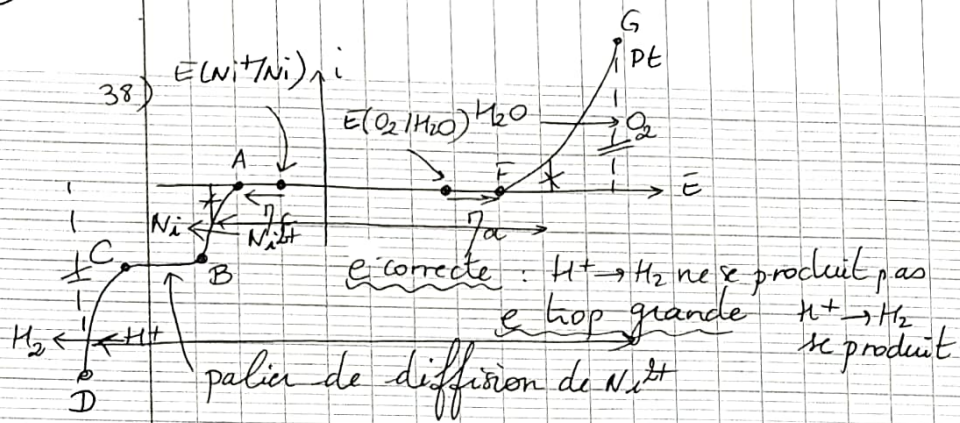 G
Pt
E(Ni⁺/Ni) i
38)
E(O₂/H₂O) H₂O → O₂
A F E
ηc
Ni ← Ni²⁺ ηa
C B
e correcte : H⁺ → H₂ ne se produit pas
e trop grande H⁺ → H₂
se produit
H₂ ← H⁺
palier de diffision de Ni²⁺
D